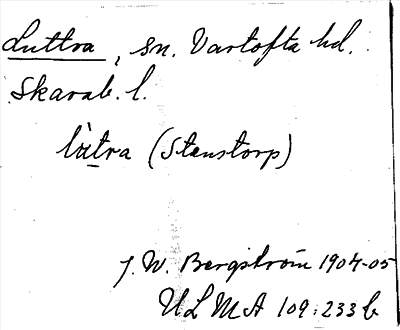 Luttra, sn. Vartofta hd.
Skarab. l.
lùtra (Stenstorp)
J. W. Bergström 1904-05
ULMA 109:233 b